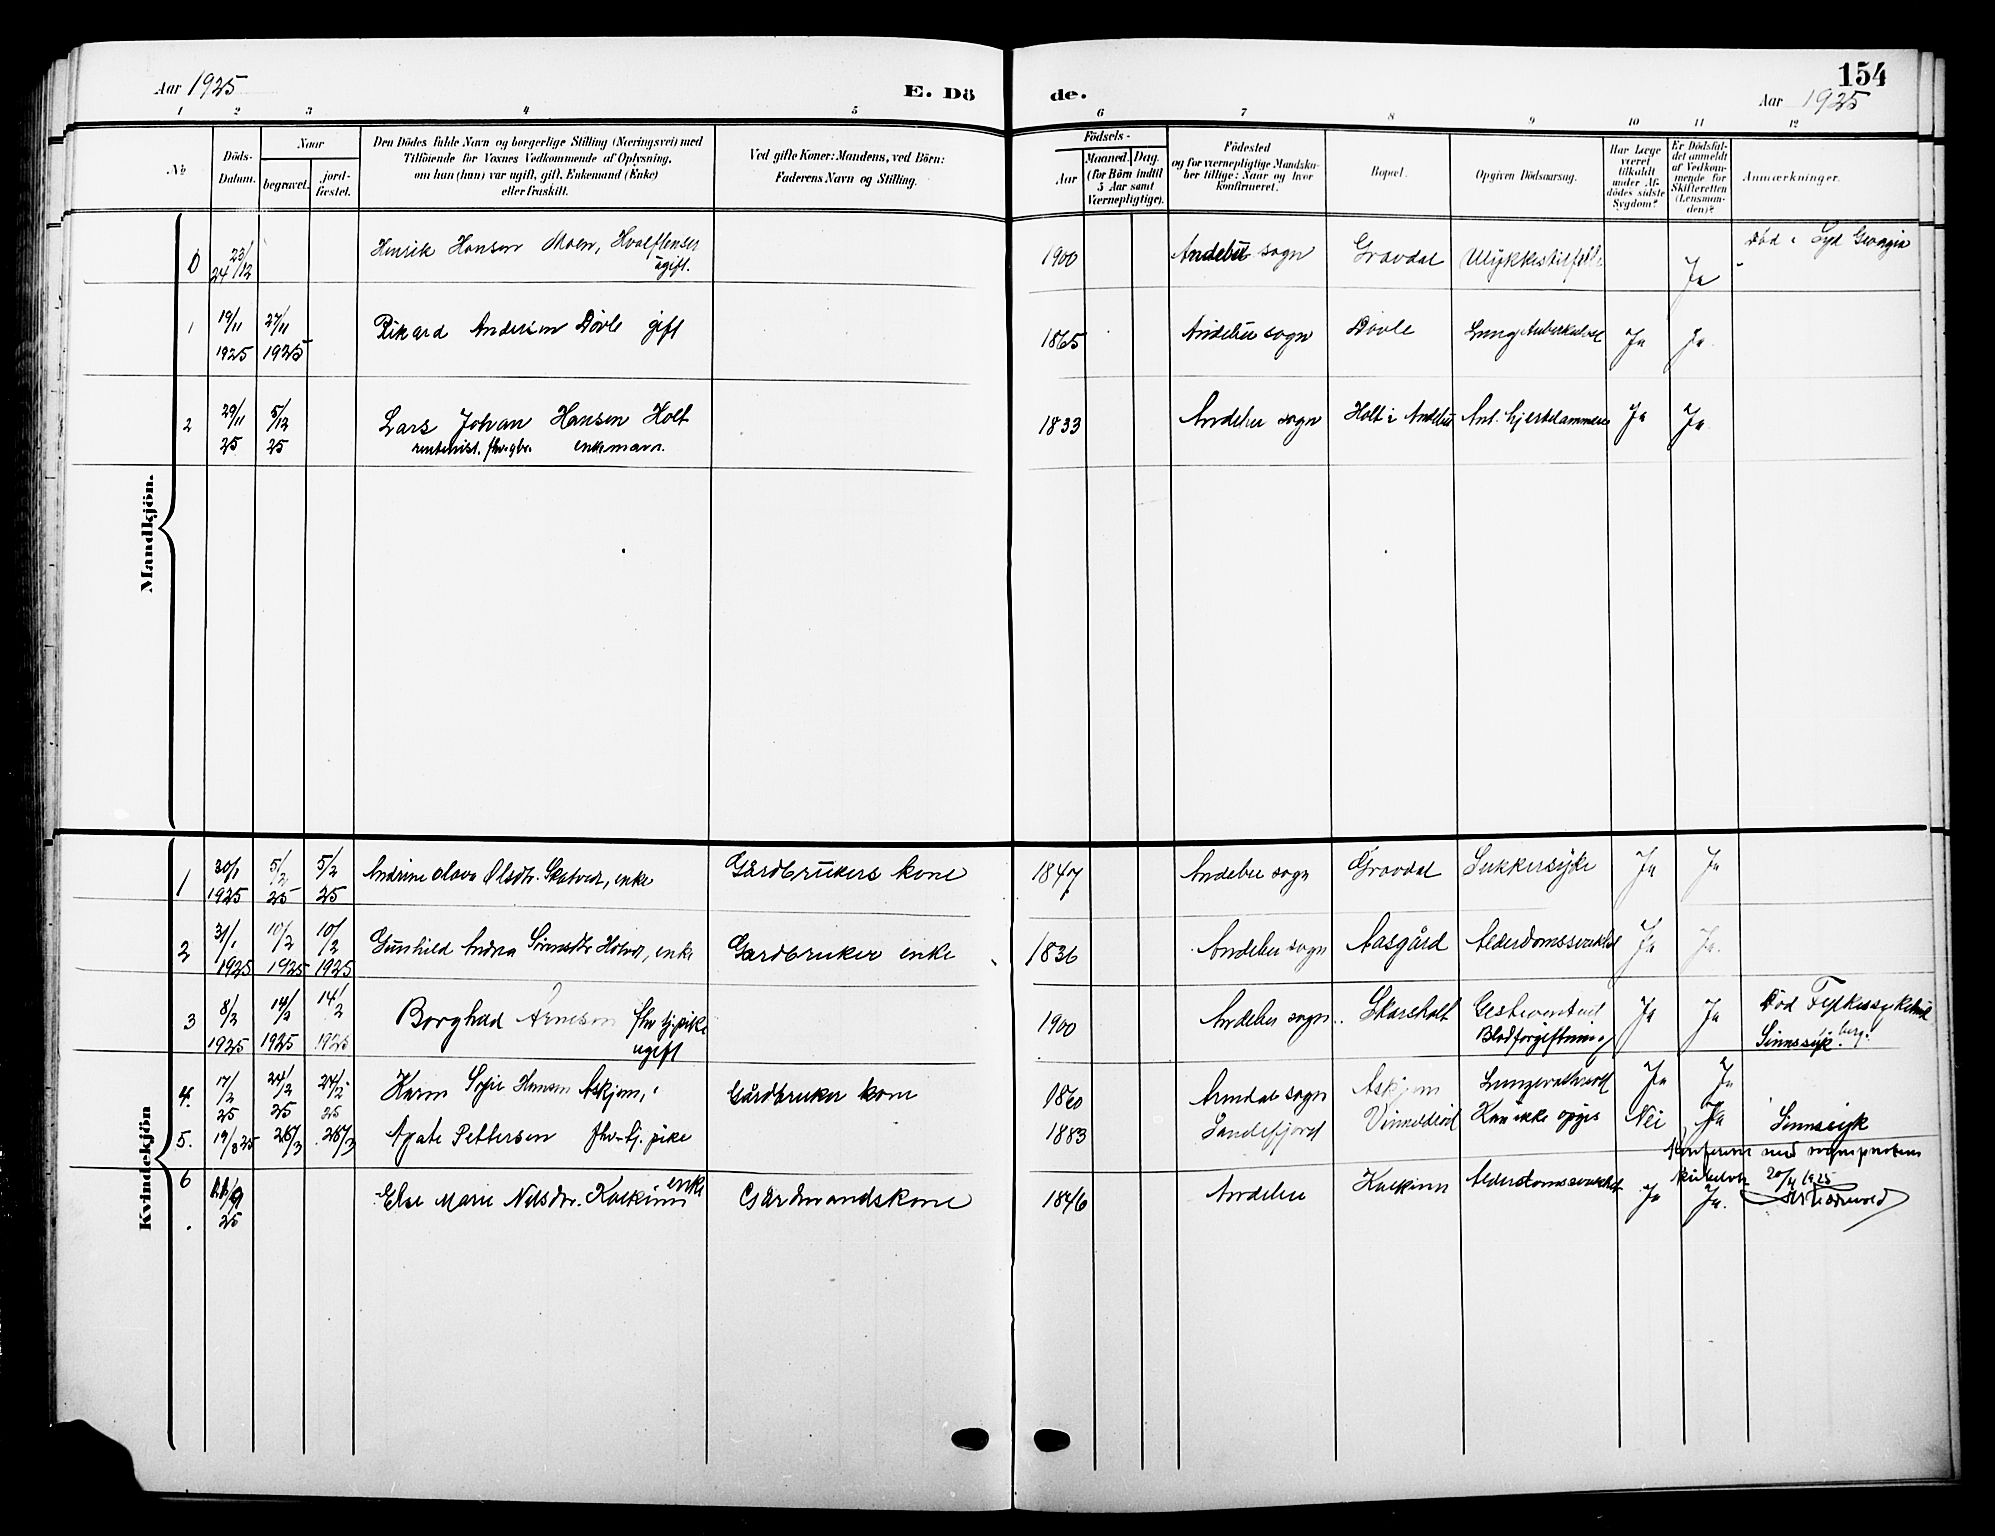 154
Aar 1925
E. Dö
de.
Aar 1925
1 2 3 4 5 6 7 8 9 10 11 12
No
Döds-
Datum.
Naar
begravet.
jord-
fæstet.
Den Dödes fulde Navn og borgerlige Stilling (Næringsvei) med
Tilföiende for Voxnes Vedkommende af Oplysning,
om han (hun) var ugift, gift, Enkemand (Enke)
eller fraskilt.
Ved gifte Koner: Mandens, ved Börn:
Faderens Navn og Stilling.
Födsels-
Aar
Maaned. Dag.
(for Börn indtil
5 Aar samt
Værnepligtige).
Födested
og for værnepligtige Mandska-
ber tillige: Naar og hvor
konfirmeret.
Bopæl.
Opgiven Dödsaarsag.
Har Læge
været
tilkaldt
under Af-
dödes sidste
Sygdom?
Er Dödsfal-
det anmeldt
af Vedkom-
mende for
Skifteretten
(Lensman-
den)?
Anmærkninger.
Mandkjön.
0 23/ 24/12 Henrik Hansen Moen, Hvalfanger 1900 Andebu sogn Gravdal Ulykkestilfelle Ja Död i Syd Georgia
ugift.
1 19/11 27/11 Rikard Andersen Dövle gift 1865 Andebu sogn Dövle Lungetuberkulose Ja Ja
1925 1925
2 29/11 5/12 Lars Johan Hansen Holt 1833 Andebu sogn Holt i Andebu Ant. hjertelammelse Ja Ja
25 25 rentenist. fhv. gbr. enkemann.
Kvindekjön
1 30/1 5/2 5/2 Andrine Olava Olsdtr. Skatvedt, enke Gårdbrukers kone 1847 Andebu sogn Gravdal Sukkersyke Ja Ja
1925 25 25
2 31/1 10/2 10/2 Gunhild Andrea Sörensdtr Holand, enke Gardbruker enke 1836 Andebu sogn Aasgård Alderdomssvakhet Ja Ja.
1925 1925 1925
3 8/2 14/2 14/2 Borghild Arnesen fhv tj. pike 1900 Andebu sogn Skarsholt Ja Ja Död Fylkessykehus
1925 1925 1925 ugift Blodforgiftning Sinnssyk
4. 17/2 24/2 24/2 Karen Sofie Hansen Askjem, Gårdbruker kone 1860 Arendal sogn Askjem Ja Ja
25 25 25
5. 19/3 25 26/3 26/3 Agate Pettersen fhv. tj. pike 1883 Sandefjord Kan ikke opgis Nei Ja Sinnssyk
6 25 Else Marie Nilsdtr. Kolkinn enke Gårdmandskone 1846 Andebu Kolkinn Alderdomssvakhet Ja Ja.
Konferert med
20/4 1925